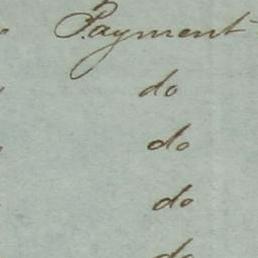 Payment
do
do
do
do